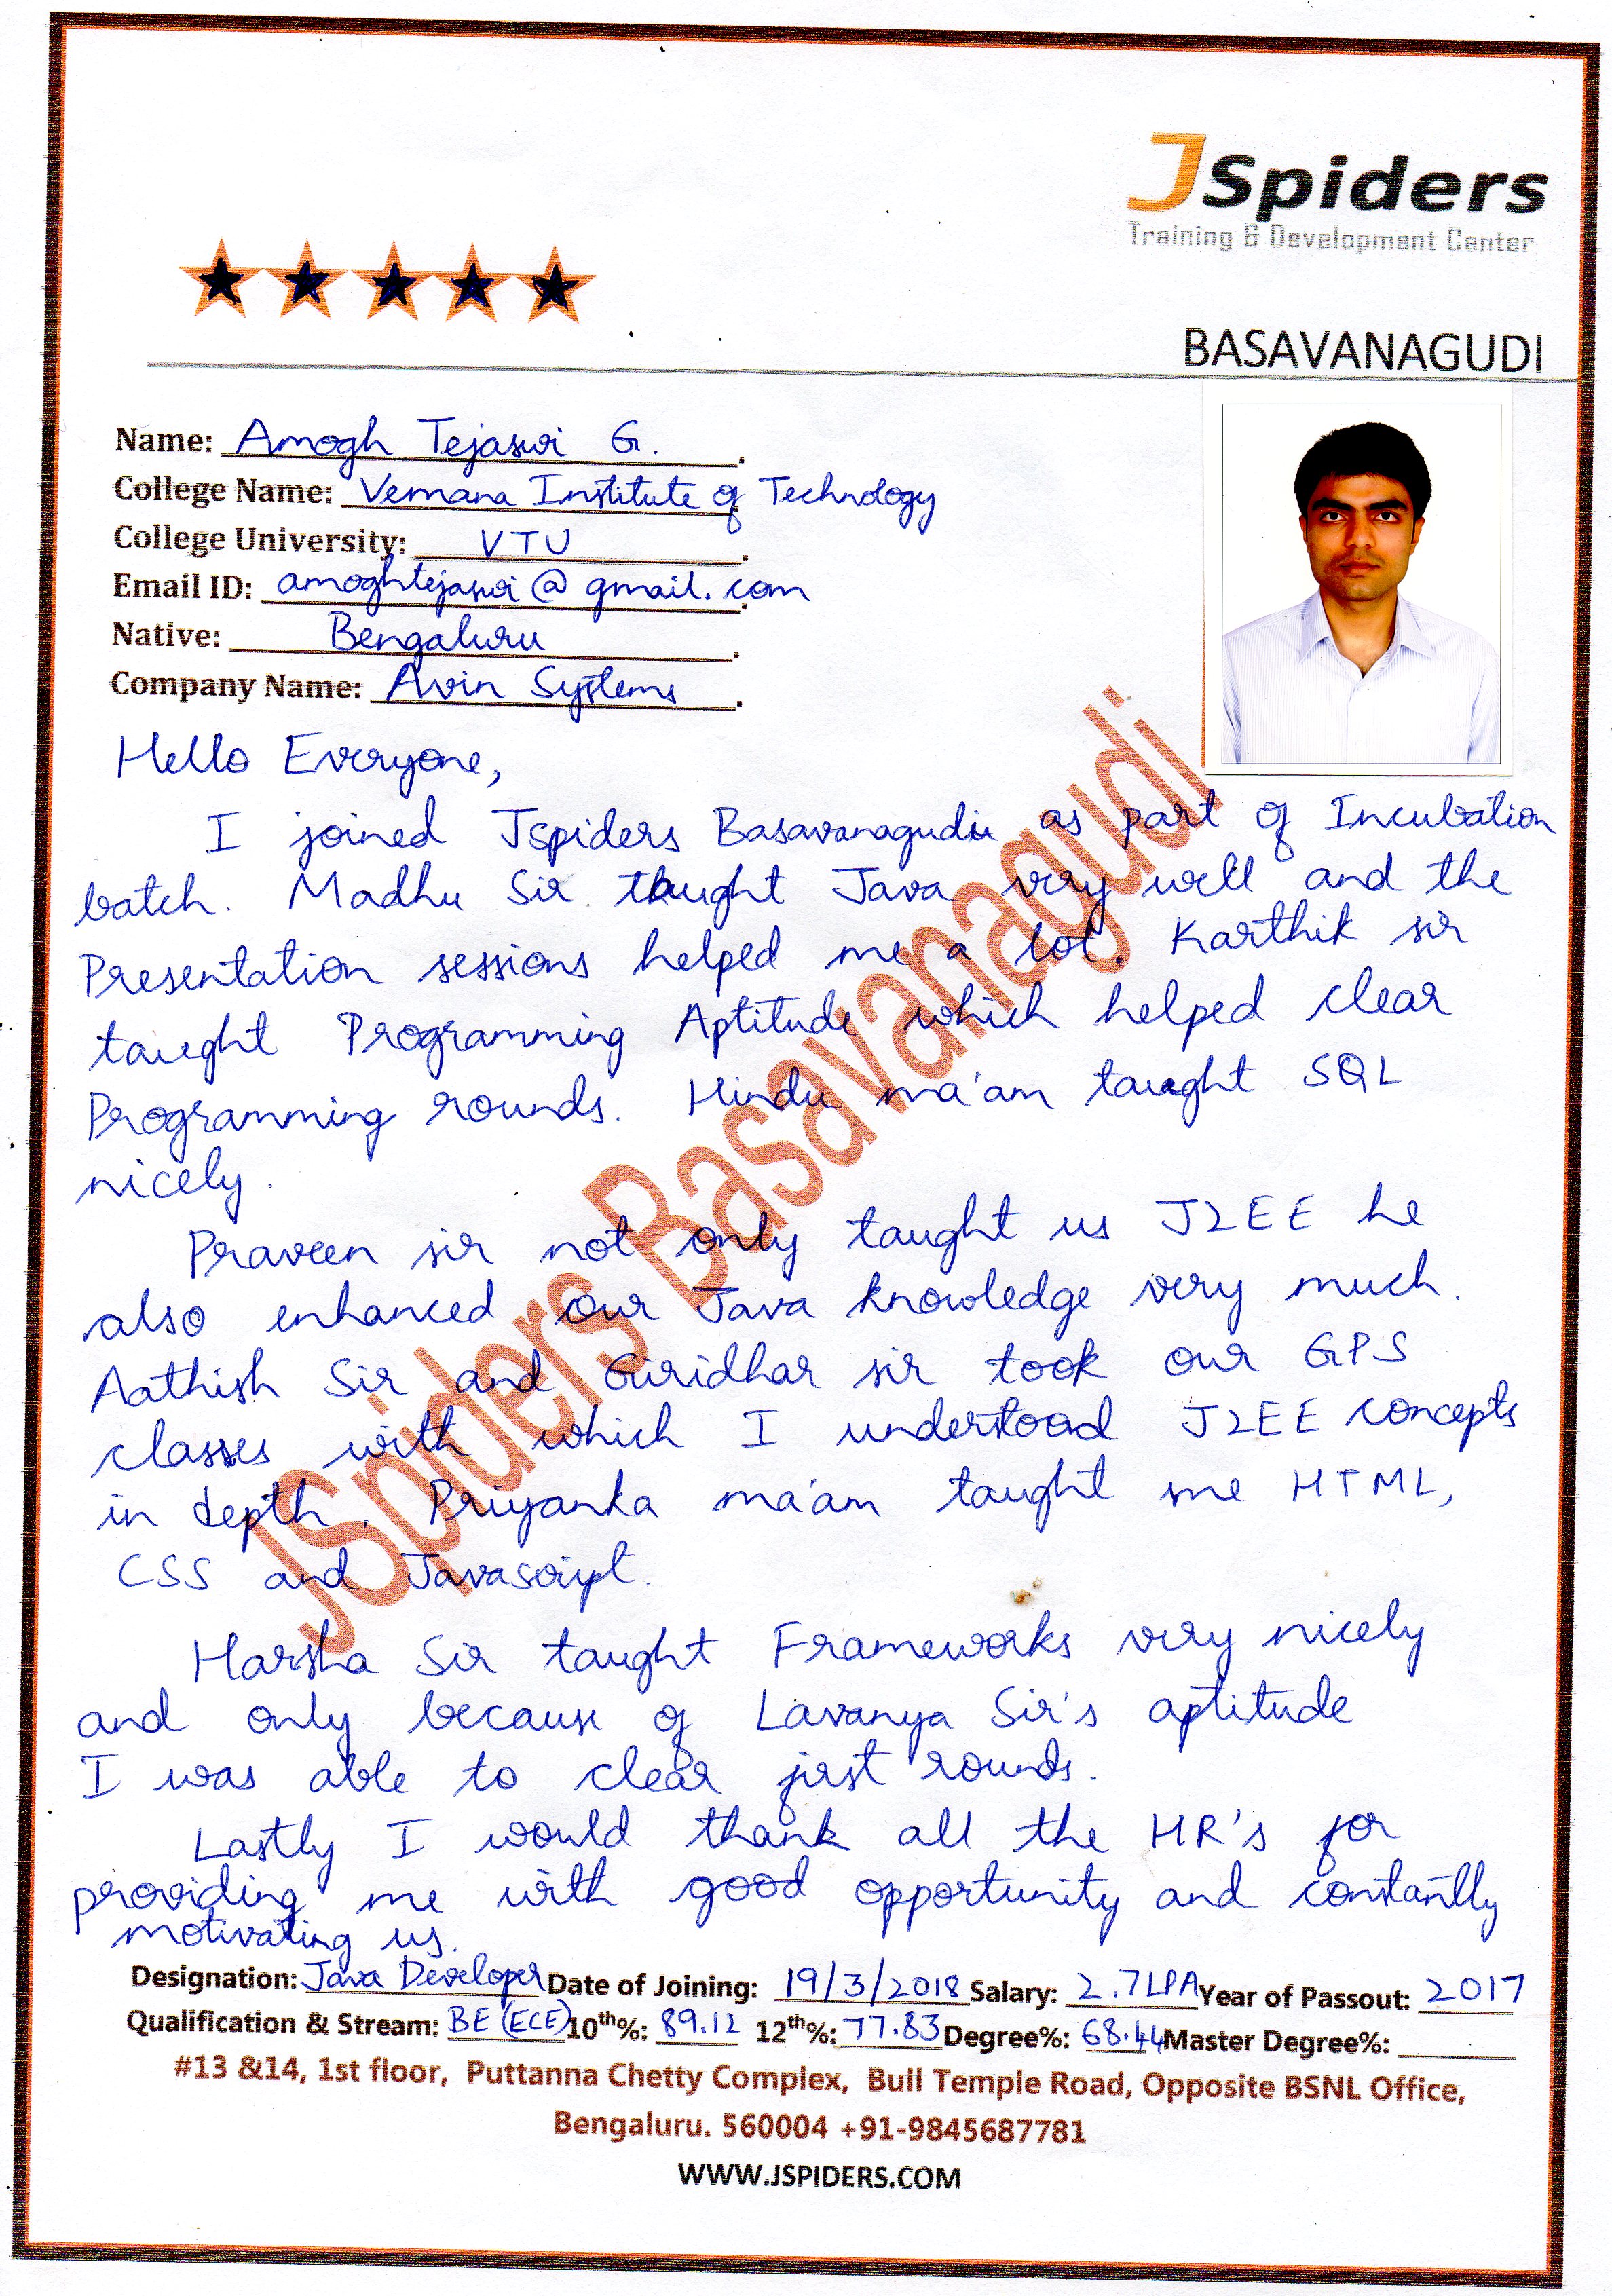 JSpiders
Training & Development Center
BASAVANAGUDI
Name: Amogh Tejaswi G.
College Name: Vemana Institute of Technology
College University: VTU
Email ID: amoghtejaswi@gmail.com
Native: Bengaluru
Company Name: Avin Systems
Hello Everyone,
I joined Jspiders Basavanagudi as part of Incubation
batch. Madhu Sir taught Java very well and the
Presentation sessions helped me a lot. Karthik sir
taught Programming Aptitude which helped clear
Programming rounds. Hindu ma'am taught SQL
nicely.
Praveen sir not only taught us J2EE he
also enhanced our Java knowledge very much.
Aathish Sir and Giridhar sir took our GPS
classes with which I understood J2EE concepts
in depth. Priyanka ma'am taught me HTML,
CSS and Javascript.
Harsha Sir taught Frameworks very nicely
and only because of Lavanya Sir's aptitude
I was able to clear first rounds.
Lastly I would thank all the HR's for
providing me with good opportunity and constantly
motivating us.
JSpiders Basavanagudi
Designation: Java Developer Date of Joining: 19/3/2018 Salary: 2.7LPA Year of Passout: 2017
Qualification & Stream: BE (ECE) 10th%: 89.12 12th%: 77.83 Degree%: 68.44 Master Degree%:
#13 &14, 1st floor, Puttanna Chetty Complex, Bull Temple Road, Opposite BSNL Office,
Bengaluru. 560004 +91-9845687781
WWW.JSPIDERS.COM